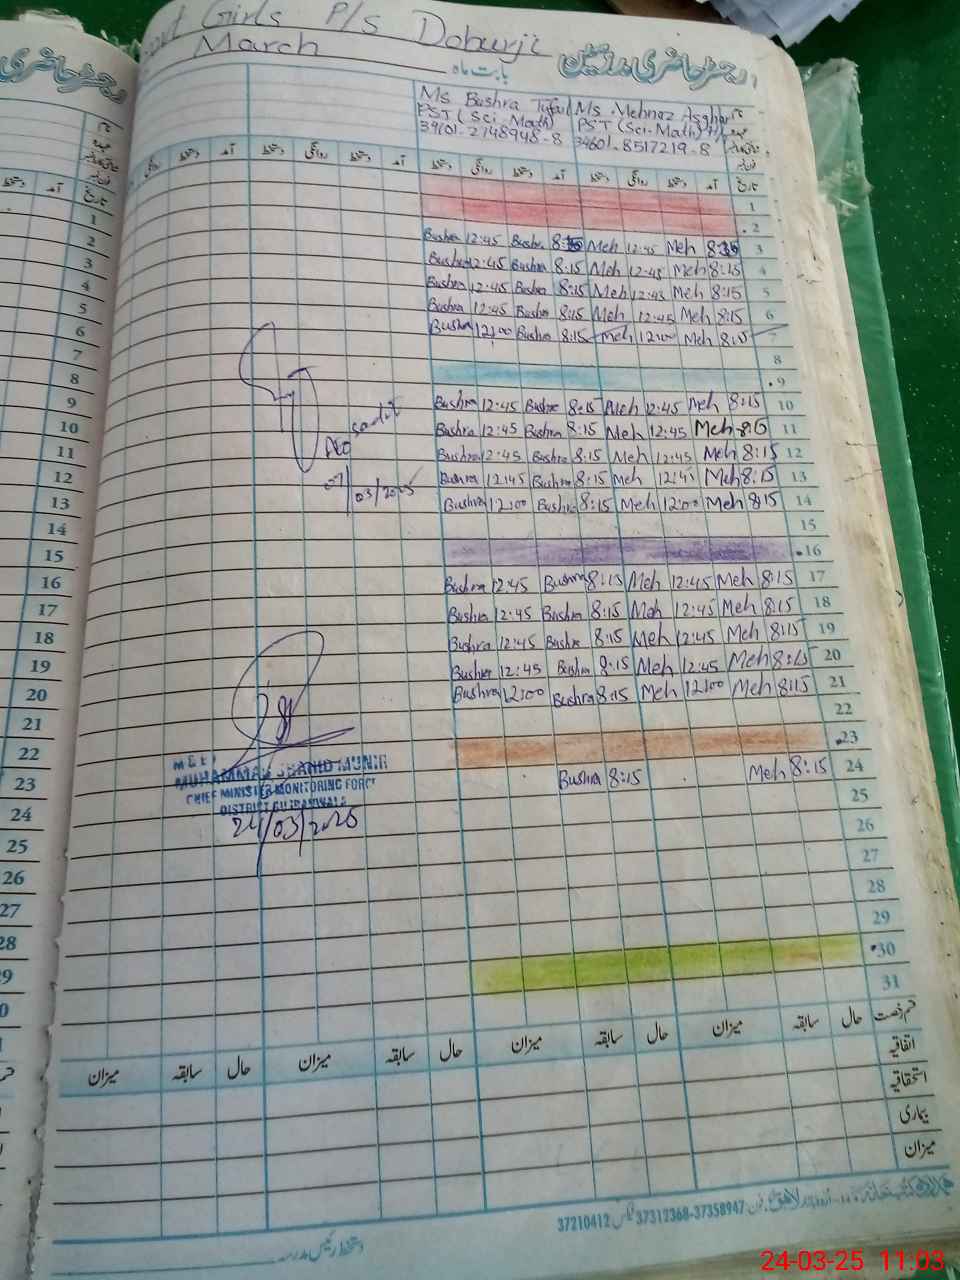 Girls P/S Doburji
March
رجسٹر حاضری مدرسین
بابت ماہ
Ms Bushra Tufail Ms. Mehnaz Asghar
PST (Sci Math) PST (Sci-Math)
34601-8517219-8
آمد دستخط روانگی دستخط آمد دستخط روانگی دستخط تاریخ
1
2
Bushra 12:45 Bushra Meh 12:45 Meh 3
Bushra 12:45 Bushra 8:15 Meh 12:45 Meh 8:15 4
Bushra 12:45 Bushra 8:15 Meh 12:45 Meh 8:15 5
Bushra 12:45 Bushra 8:15 Meh 12:45 Meh 8:15 6
Bushra 12:00 Bushra 8:15 Meh 12:00 Meh 8:15 7
8
9
Bushra 12:45 Bushra 8:15 Meh 12:45 Meh 8:15 10
Bushra 12:45 Bushra 8:15 Meh 12:45 Meh 8:15 11
Bushra 12:45 Bushra 8:15 Meh 12:45 Meh 8:15 12
Bushra 12:45 Bushra 8:15 Meh 12:45 Meh 8:15 13
Bushra 12:00 Bushra 8:15 Meh 12:00 Meh 8:15 14
03/2025
15
16
Bushra 12:45 Bushra 8:15 Meh 12:45 Meh 8:15 17
Bushra 12:45 Bushra 8:15 Meh 12:45 Meh 8:15 18
Bushra 12:45 Bushra 8:15 Meh 12:45 Meh 8:15 19
Bushra 12:45 Bushra 8:15 Meh 12:45 Meh 8:15 20
Bushra 12:00 Bushra 8:15 Meh 12:00 Meh 8:15 21
22
23
Bushra 8:15 Meh 8:15 24
MUHAMMAD SHAHID MUNIR
CHIEF MINISTER MONITORING FORCE
DISTRICT GUJRANWALA
24/03/2025
25
26
27
28
29
30
31
قسم رخصت حال سابقہ میزان حال سابقہ میزان حال سابقہ میزان حال سابقہ میزان
اتفاقیہ
استحقاقیہ
بیماری
میزان
37210412 فیکس 37312368-37358947
دستخط رئیس مدرسہ
24-03-25 11:03